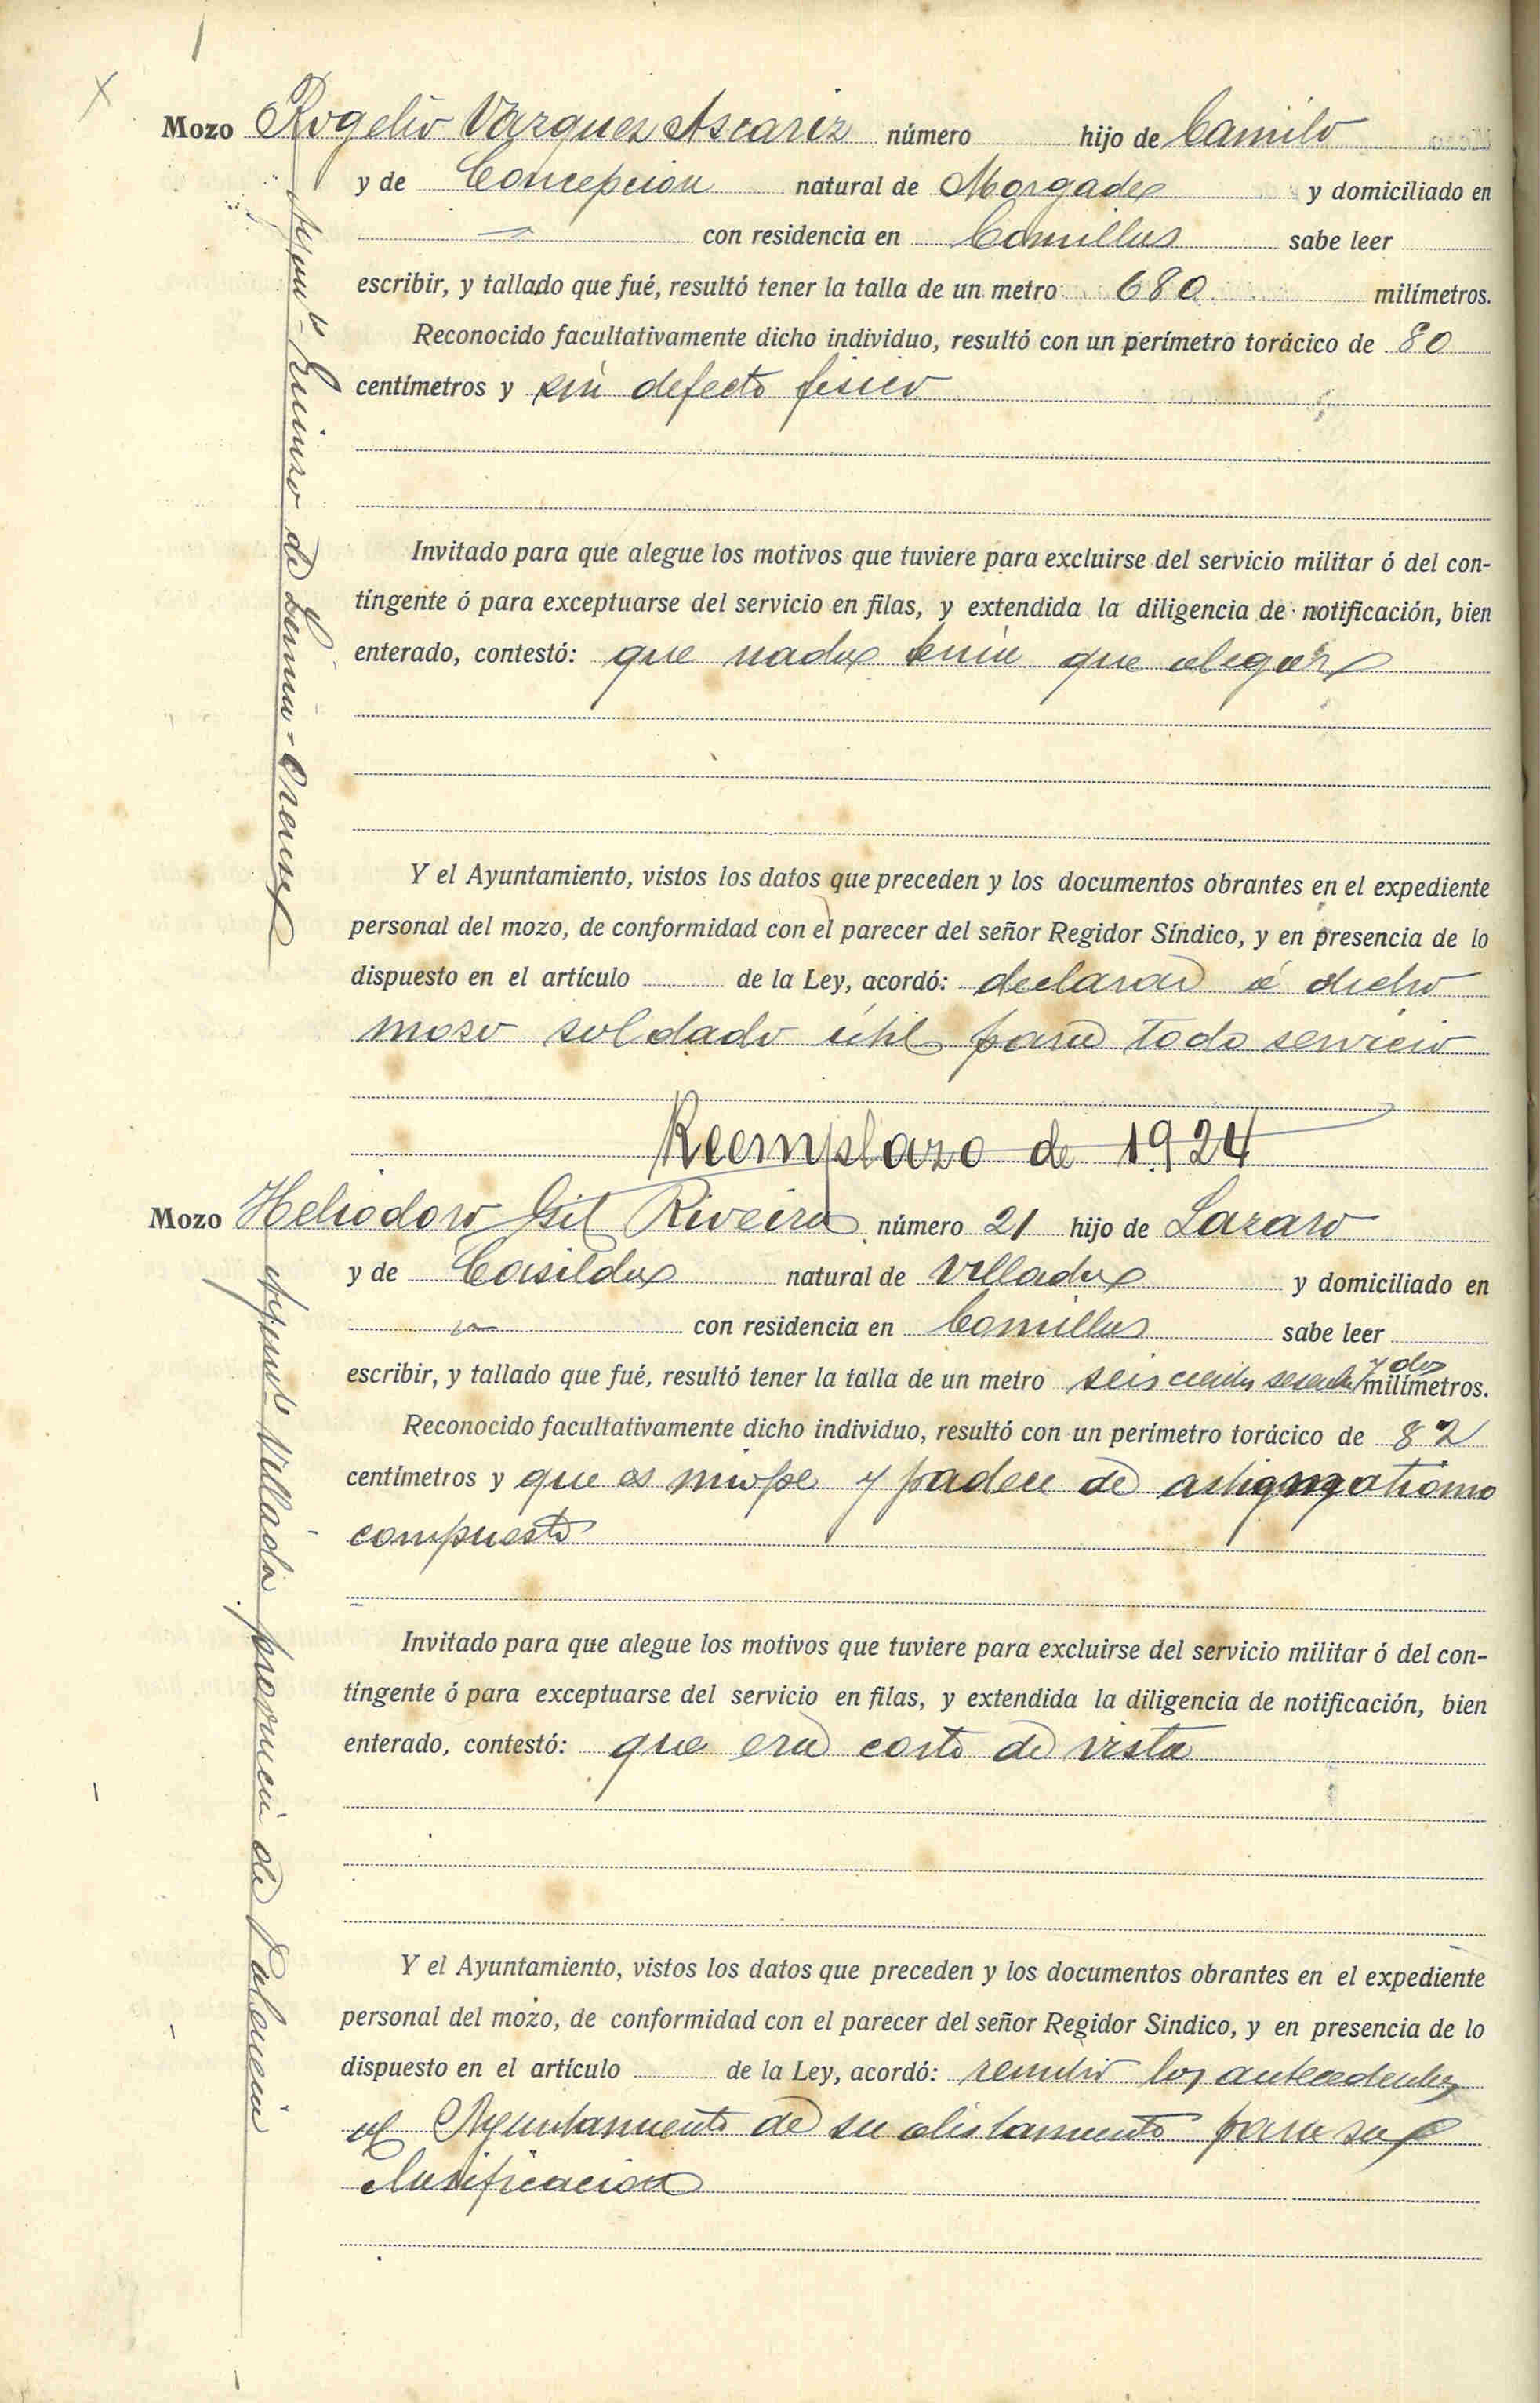 Mozo Rogelio Vazquez Ascariz número hijo de Camilo
y de Concepcion natural de Morgade y domiciliado en
con residencia en Comillas sabe leer
escribir, y tallado que fué, resultó tener la talla de un metro 680 milímetros.
Reconocido facultativamente dicho individuo, resultó con un perímetro torácico de 80
centímetros y sin defecto fisico
Invitado para que alegue los motivos que tuviere para excluirse del servicio militar ó del con-
tingente ó para exceptuarse del servicio en filas, y extendida la diligencia de notificación, bien
enterado, contestó: que nada tenia que alegar
Y el Ayuntamiento, vistos los datos que preceden y los documentos obrantes en el expediente
personal del mozo, de conformidad con el parecer del señor Regidor Síndico, y en presencia de lo
dispuesto en el artículo de la Ley, acordó: declarar á dicho
moso soldado útil para todo servicio
Ayunto Guinzo de Limia - Orense
Reemplazo de 1924
Mozo Heliodoro Gil Riveira número 21 hijo de Lazaro
y de Casilda natural de Villada y domiciliado en
con residencia en Comillas sabe leer
escribir, y tallado que fué, resultó tener la talla de un metro seiscientos sesenta y dos milímetros.
Reconocido facultativamente dicho individuo, resultó con un perímetro torácico de 82
centímetros y que es miope y padece de astigmatismo
compuesto
Invitado para que alegue los motivos que tuviere para excluirse del servicio militar ó del con-
tingente ó para exceptuarse del servicio en filas, y extendida la diligencia de notificación, bien
enterado, contestó: que era corto de vista
Y el Ayuntamiento, vistos los datos que preceden y los documentos obrantes en el expediente
personal del mozo, de conformidad con el parecer del señor Regidor Sindico, y en presencia de lo
dispuesto en el artículo de la Ley, acordó: remitir los antecedentes
al Ayuntamiento de su alistamiento para su
clasificacion
Ayunto Villada provincia de Palencia